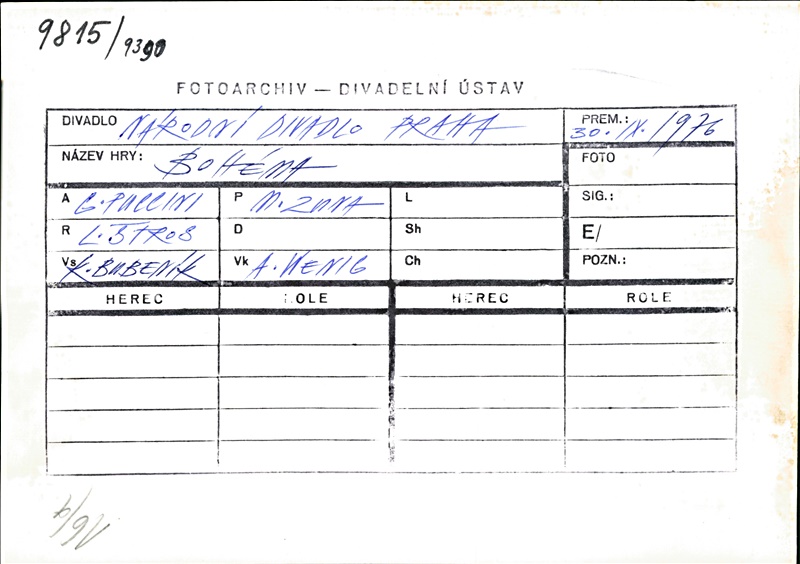 9815/9390
FOTOARCHIV — DIVADELNÍ ÚSTAV
DIVADLO NÁRODNÍ DIVADLO PRAHA PREM.: 30. IX. 1976
NÁZEV HRY: BOHÉMA FOTO
A G. PUCCINI P M. ZUNA L SIG.:
R L. ŠTROS D Sh E/
Vs K. BUBENÍK Vk A. WENIG Ch POZN.:
HEREC ROLE HEREC ROLE